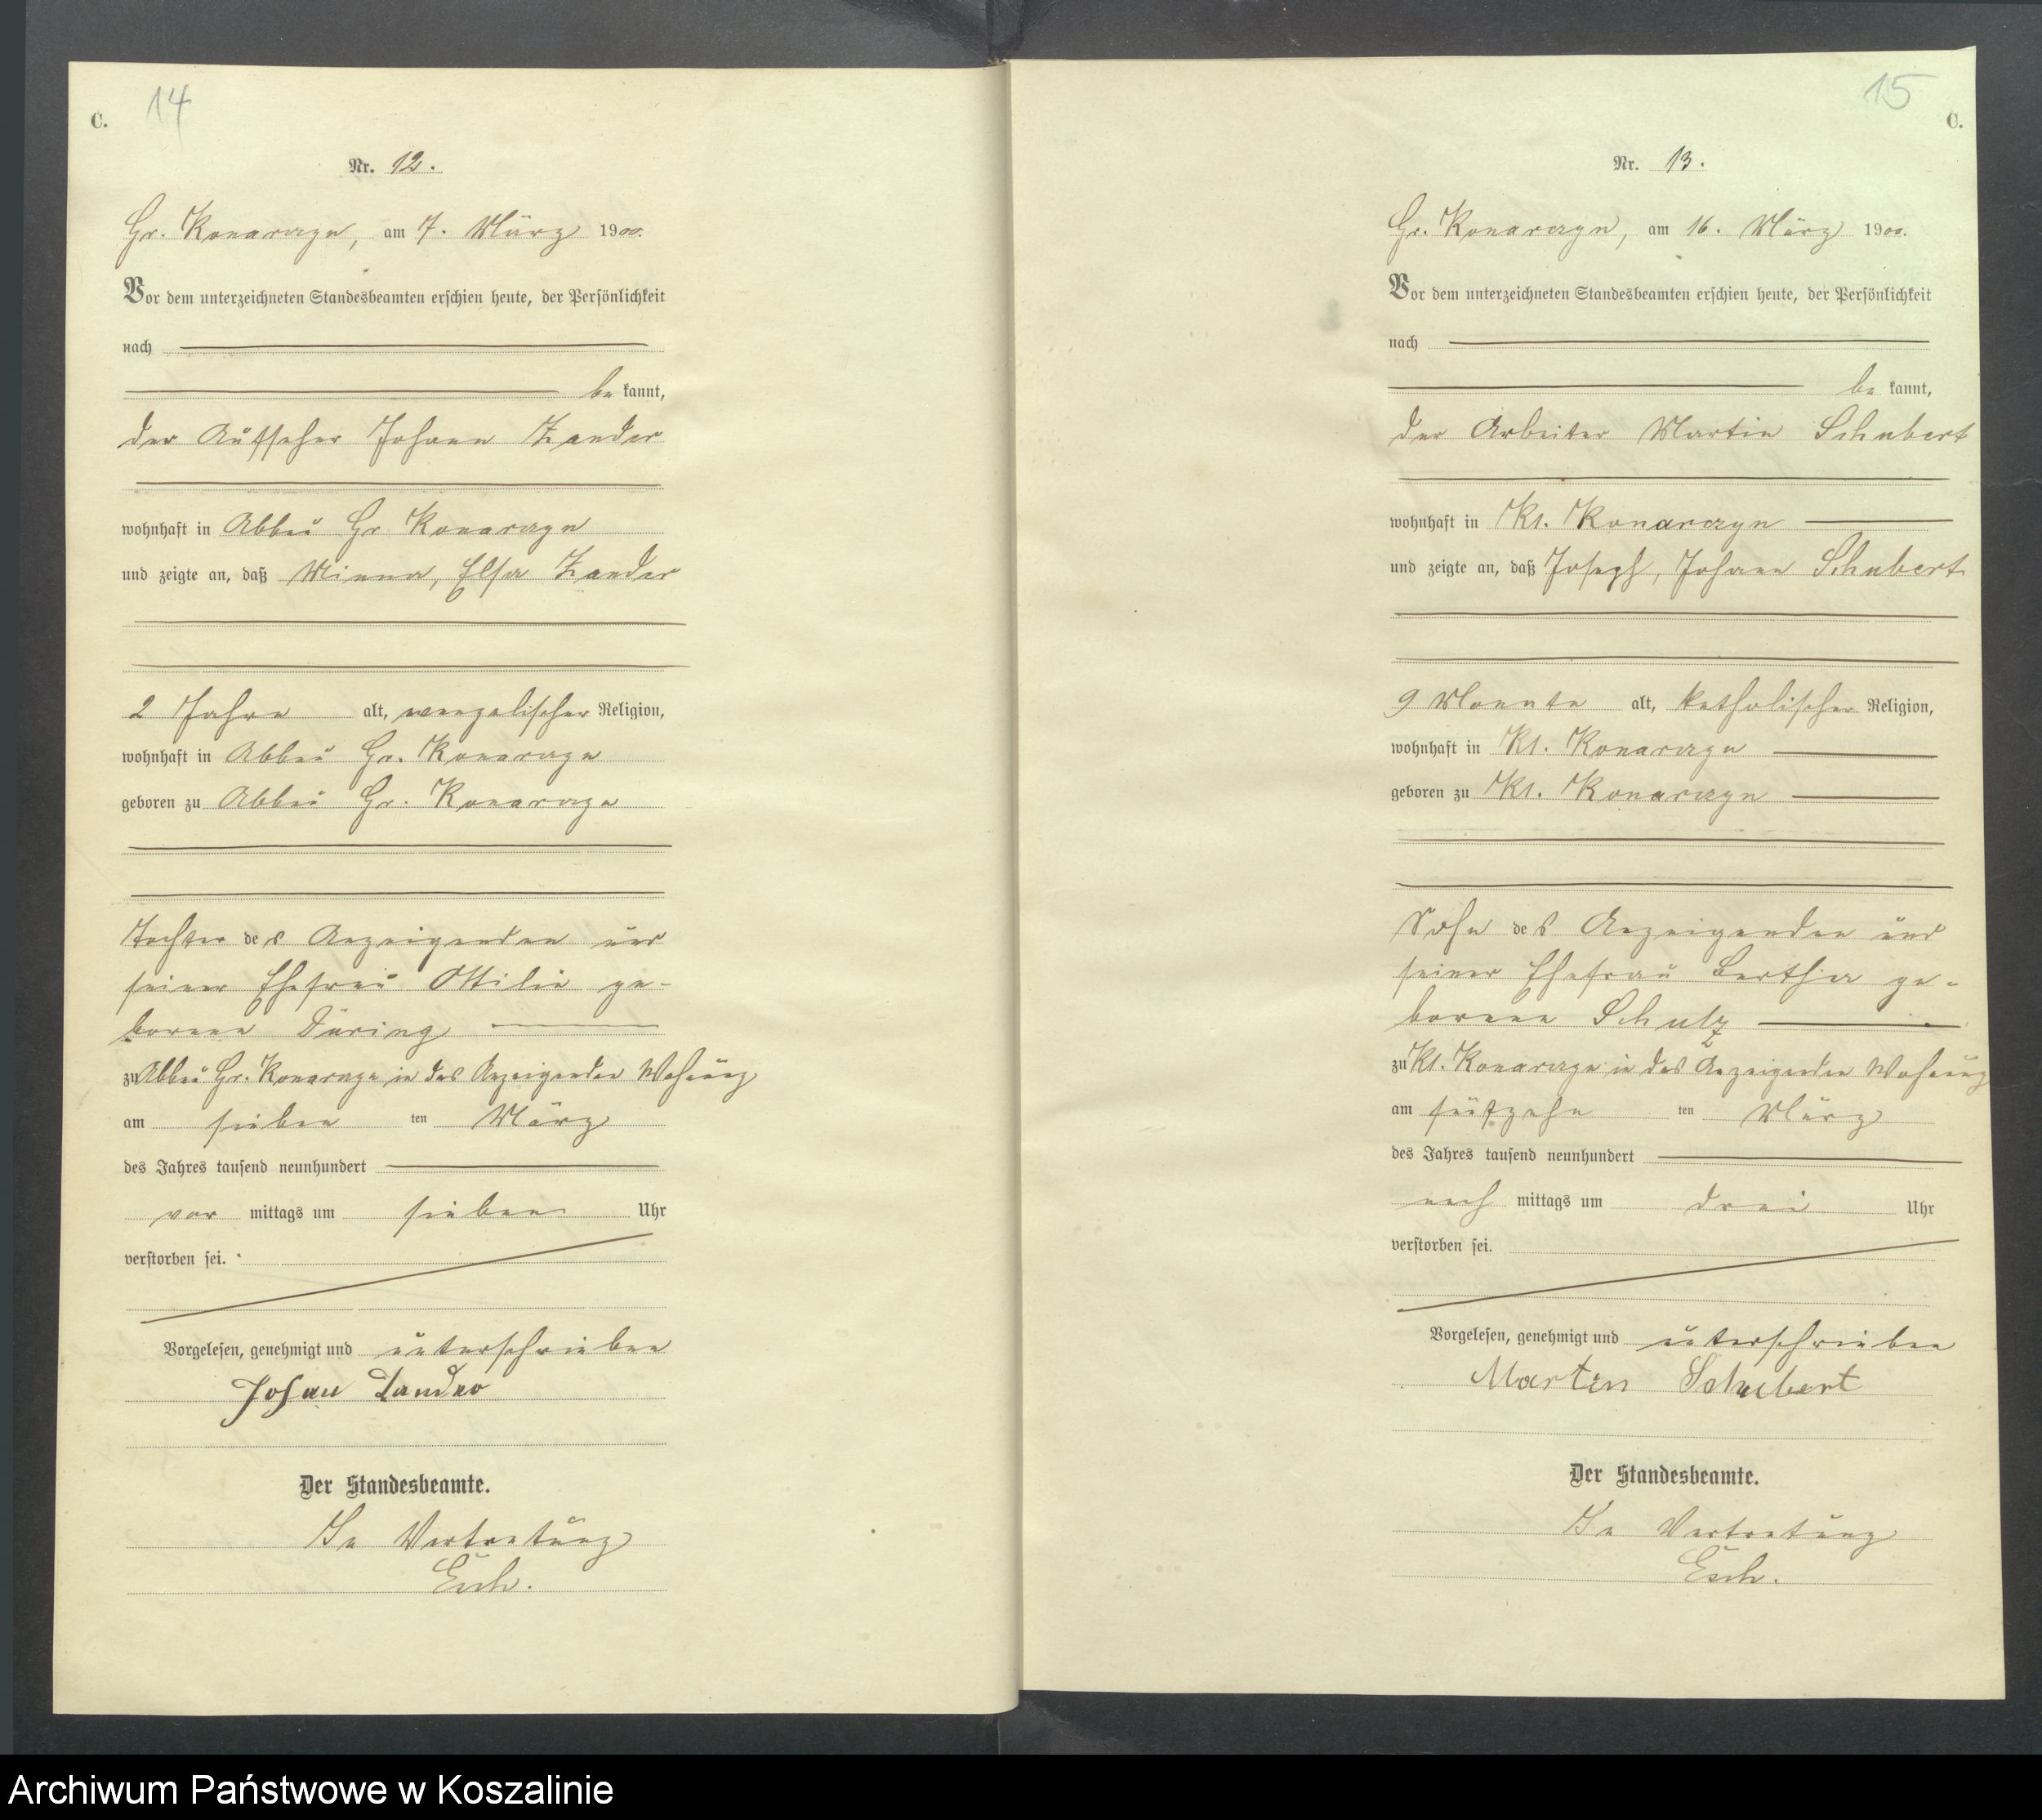 14
C.
Nr. 12.
Gr. Konarczyn, am 7. März 1900.
Vor dem unterzeichneten Standesbeamten erschien heute, der Persönlichkeit
nach
be kannt,
der Aufseher Johann Zander
wohnhaft in Abbau Gr. Konarczyn
und zeigte an, daß Minna, Elsa Zander
2 Jahre alt, evangelischer Religion,
wohnhaft in Abbau Gr. Konarczyn
geboren zu Abbau Gr. Konarczyn
Tochter des Anzeigenden und
seiner Ehefrau Ottilie ge-
borene Düring
zu Abbau Gr. Konarczyn in des Anzeigenden Wohnung
am sieben ten März
des Jahres tausend neunhundert
vor mittags um sieben Uhr
verstorben sei.
Vorgelesen, genehmigt und unterschrieben
Johan Zander
Der Standesbeamte.
In Vertretung
Esch.
15
C.
Nr. 13.
Gr. Konarczyn, am 16. März 1900.
Vor dem unterzeichneten Standesbeamten erschien heute, der Persönlichkeit
nach
be kannt,
der Arbeiter Martin Schubert
wohnhaft in Kl. Konarczyn
und zeigte an, daß Joseph, Johann Schubert
9 Monate alt, katholischer Religion,
wohnhaft in Kl. Konarczyn
geboren zu Kl. Konarczyn
Sohn des Anzeigenden und
seiner Ehefrau Bertha ge-
borene Schulz
zu Kl. Konarczyn in des Anzeigenden Wohnung
am fünfzehn ten März
des Jahres tausend neunhundert
nach mittags um drei Uhr
verstorben sei.
Vorgelesen, genehmigt und unterschrieben
Martin Schubert
Der Standesbeamte.
In Vertretung
Esch.
Archiwum Państwowe w Koszalinie